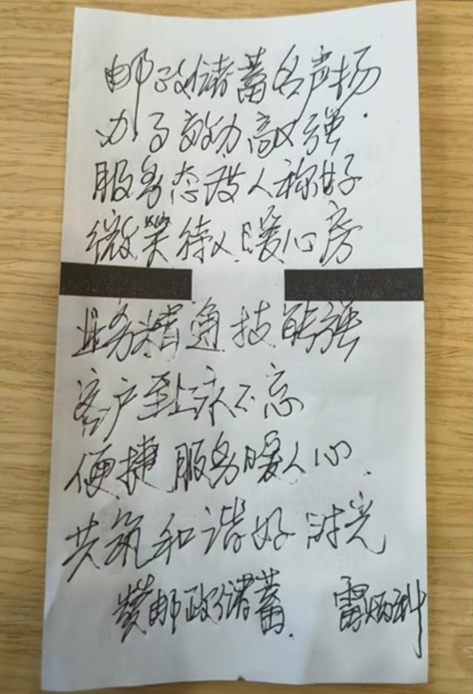 邮政储蓄名声扬
办事效力高效强.
服务态度人称好
微笑待人暖心房
业务精通技能强
客户至上永不忘
便捷服务暖人心.
共筑和谐好时光
赞邮政储蓄. 雷炳科